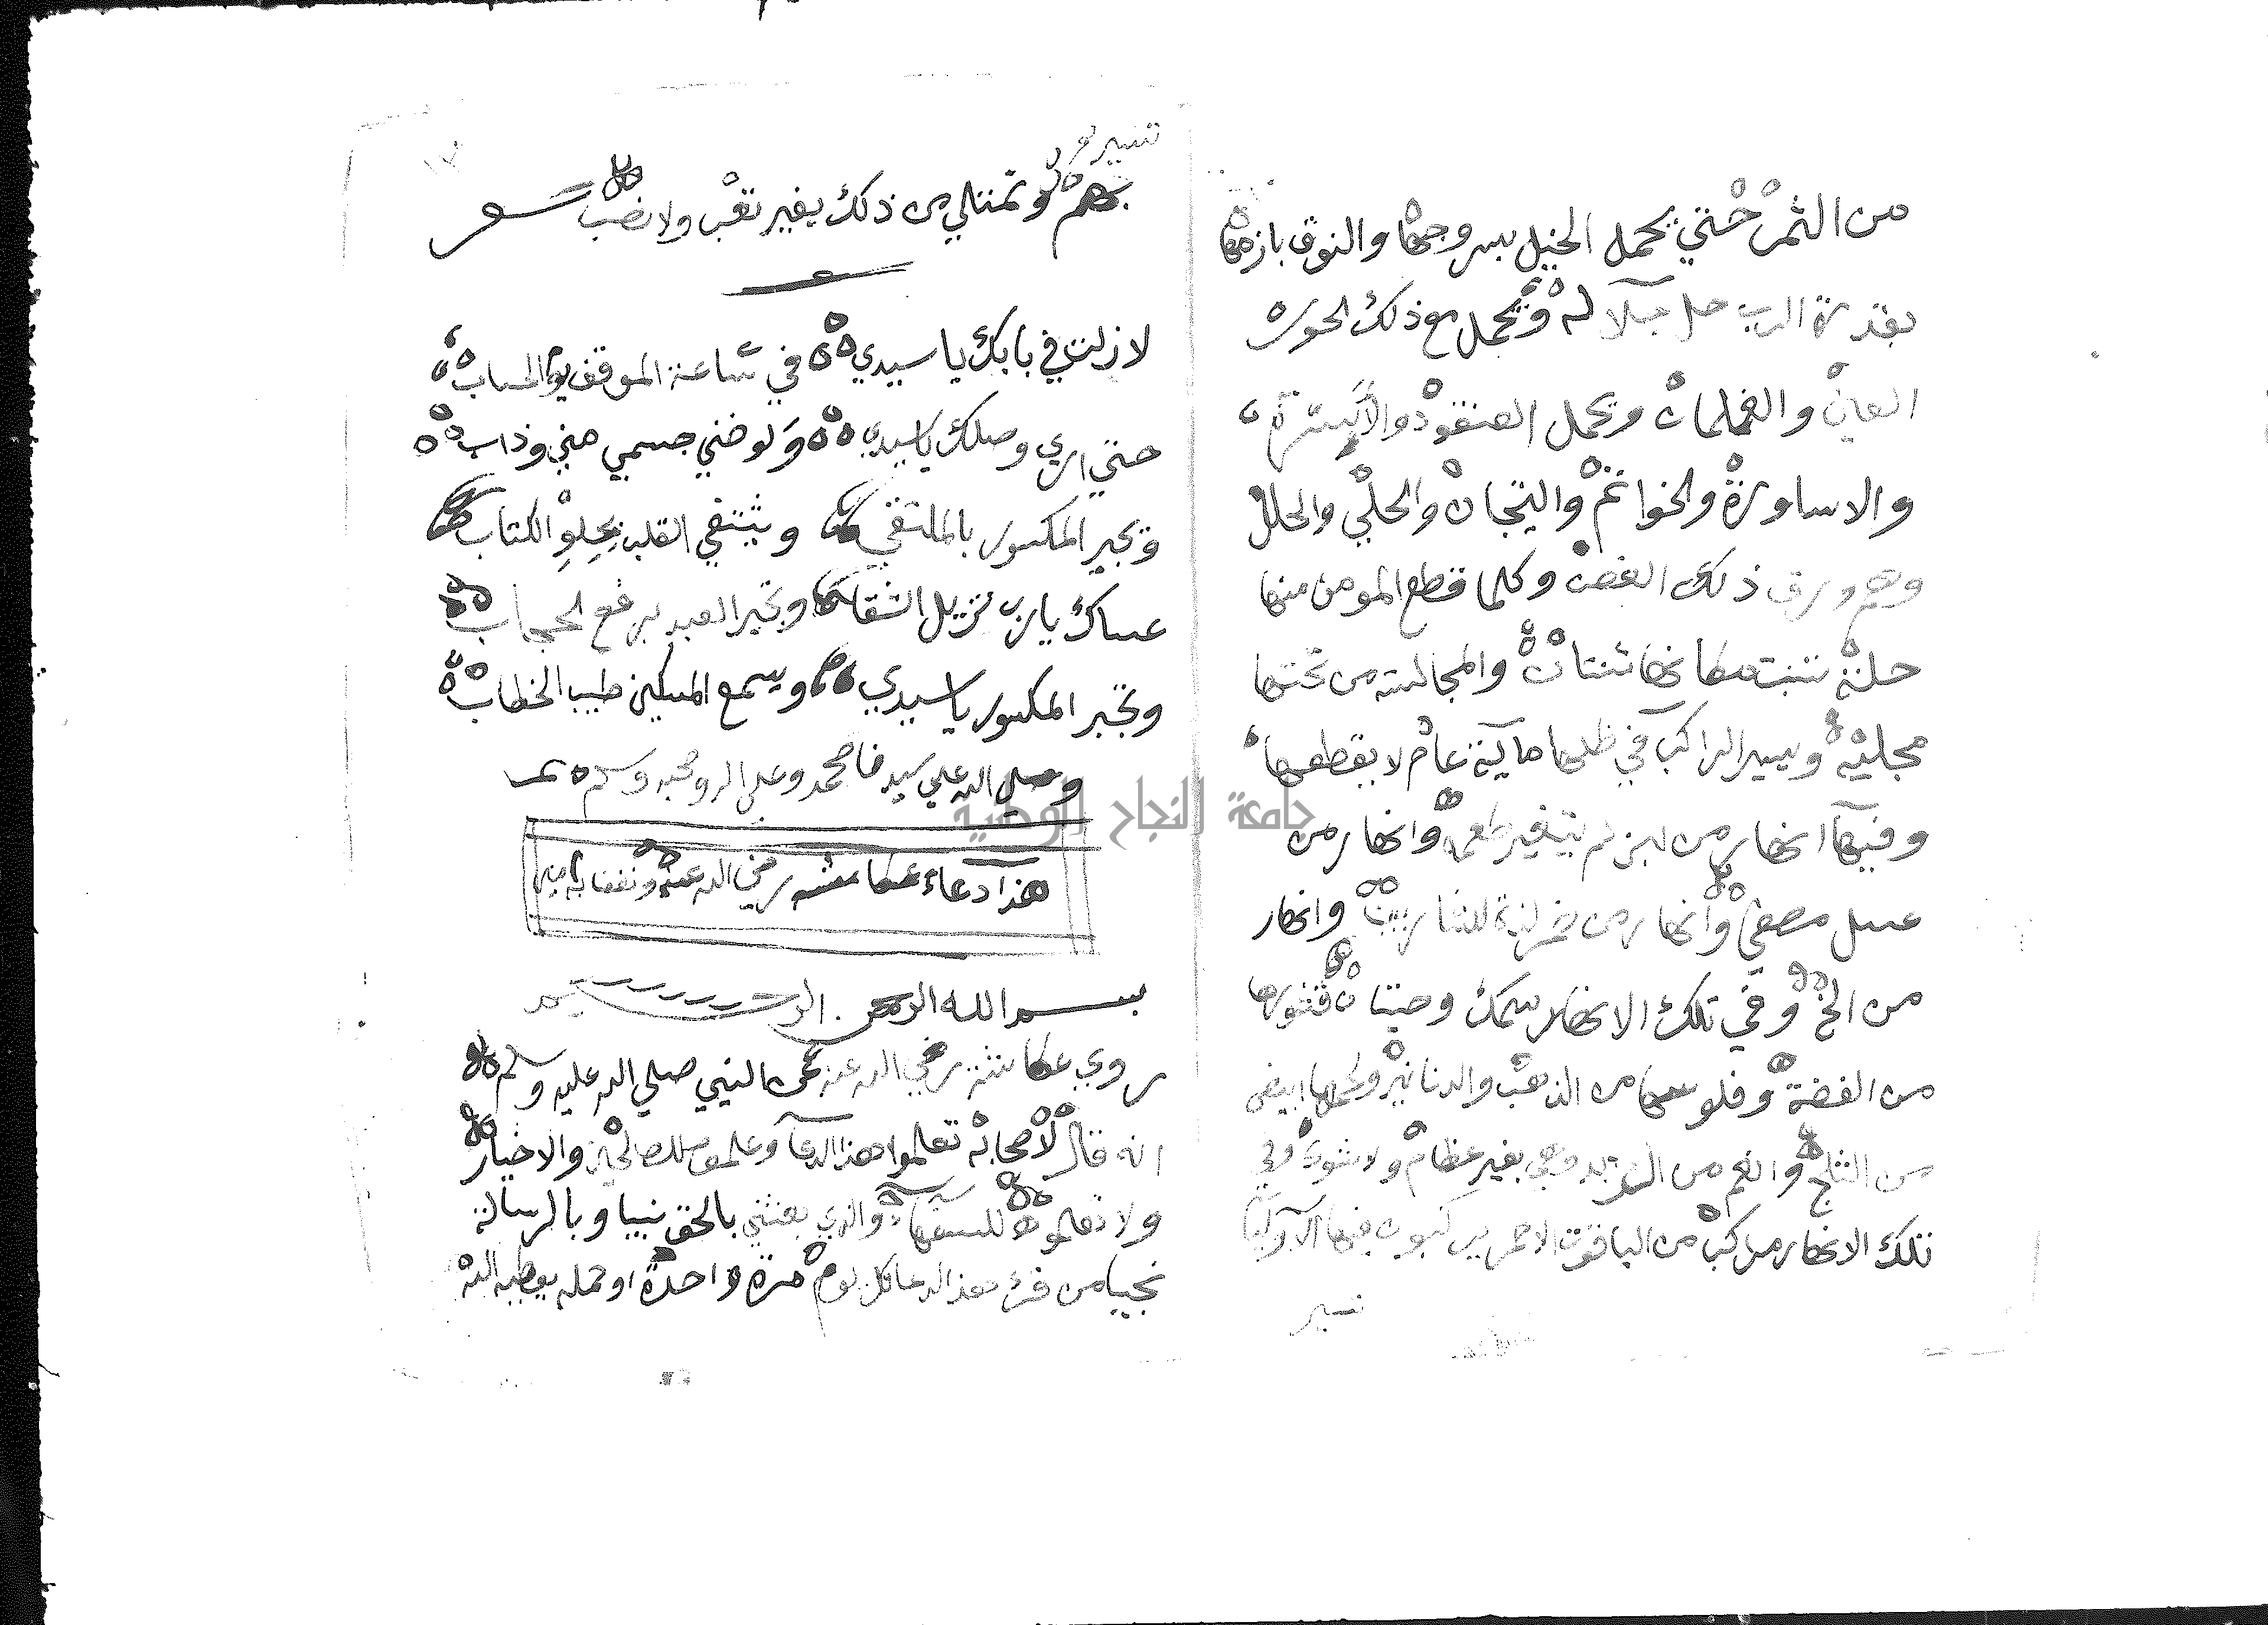 من الثمر حتي يحمل الخيل بسروجها والنوق بازمتها
بقدرة الرب جل جلاله ويحمل مع ذلك الحور
العين والغلمان ويحمل العنقود والأسرة
والاساورة والخواتم والتيجان والحلي والحلل
وهم ورق ذلك الغصن وكلما قطع المومن منها
حلة تنبت مكانها ثنتان والمجالسه من تحتها
مجلية ويسير الراكب في ظلها مآية عام لا يقطعها
وفيها انهار من لبن لم يتغير طعمه وانهار من
عسل مصفي وانهار من خمر لذة للشاربين وانهار
من الخ وفي تلك الانهار سمك وحيتان قشورها
من الفضة وفلوسها من الذهب والدنانير ولحمها ابيض
من الثلج وانعم من الزبد وهي بغير عظام ولا شوك وفي
تلك الانهار مراكب من الياقوت الاحمر يركبون فيها الآوليا
تسير
تسير
بهم لو تمتلي من ذلك بغير تعب ولا نصب
لا زلت في بابك يا سيدي في ساعة الموقف يوم الحساب
حتي اري وصلك يا سيدي ولو ضني جسمي مني وذاب
وتجبر المكسور بالملتقي ويشتفي القلب بحلو الكتاب
عساك يا رب تزيل الشقا وتجبر العبد برفع الحجاب
وتجبر المكسور يا سيدي ويسمع المسكين طيب الخطاب
وصلي الله علي سيدنا محمد وعلي اله وصحبه وسلم
هذا دعاء عكاشه رضي الله عنه ونفعنا به امين
بسم الله الرحمن الرحيم
روي عكاشة رضي الله عنه عن النبي صلي الله عليه وسلم
انه قال لأصحابه تعلموا هذا الدعآ وعلموه للصالحين والاخيار
ولا تعلموه للسفهآء والذي بعثني بالحق نبيا وبالرسالة
نجيا من قرء هذا الدعا كل يوم مرة واحدة او حمله يعطيه الله
جامعة النجاح الوطنية